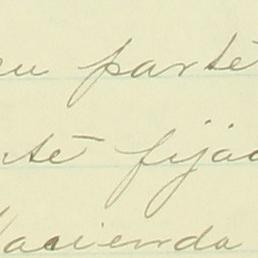 en parte
nte fijad
Hacienda